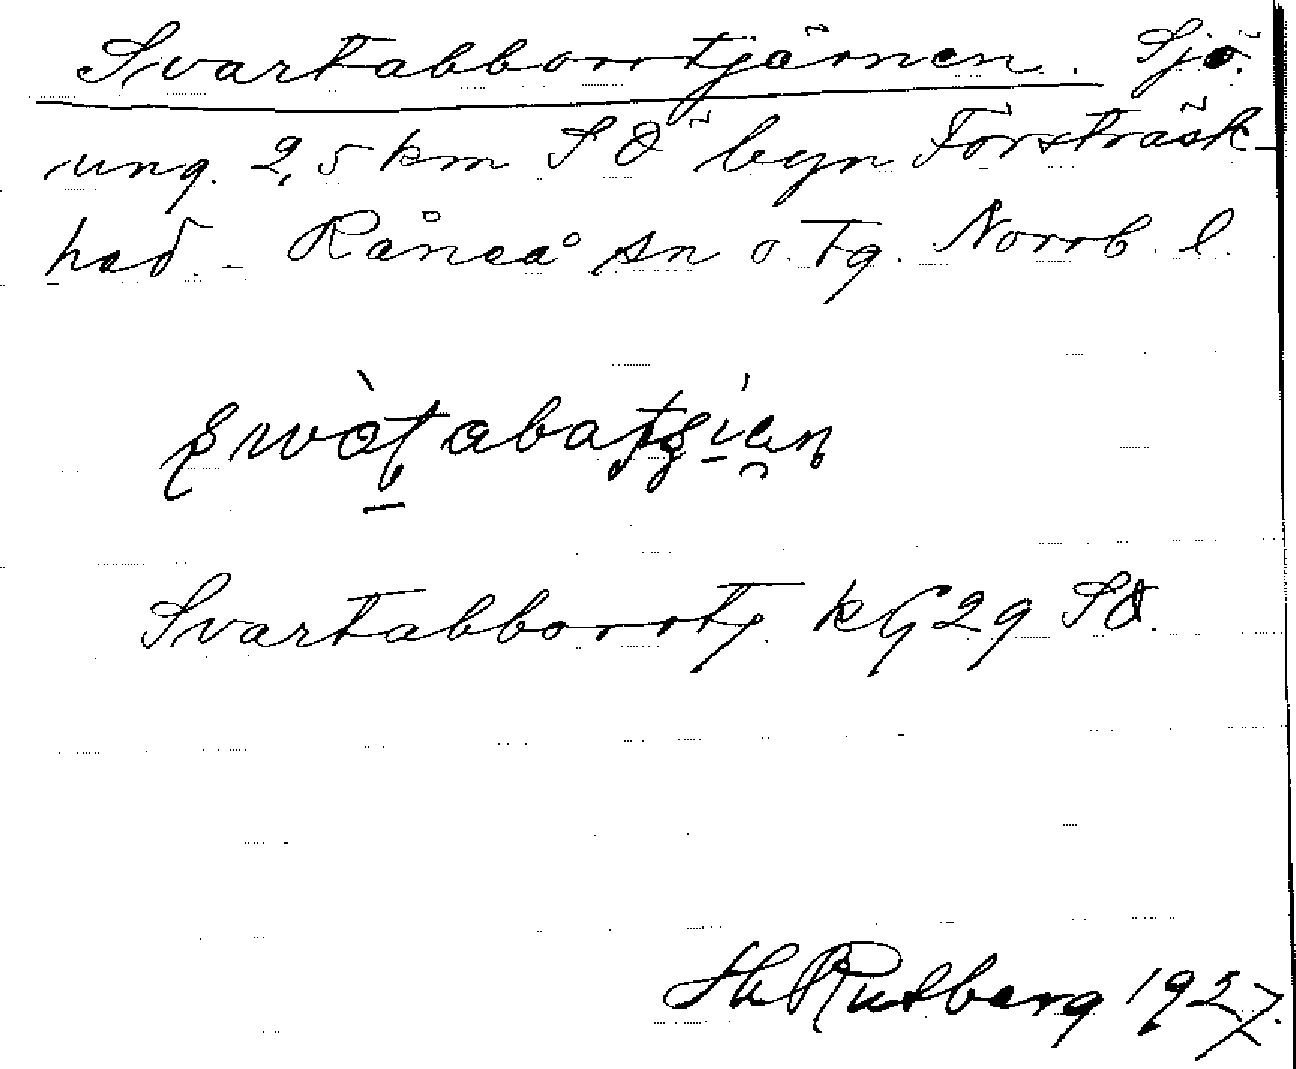 Svartabborrtjärnen. Sjö.
ung. 2,5 km SÖ byn Försträsk-
had. - Råneå sn o. tg. Norrb. l.
Svartabborrtj. kG 29 SÖ.
Hr Rutberg 1927.